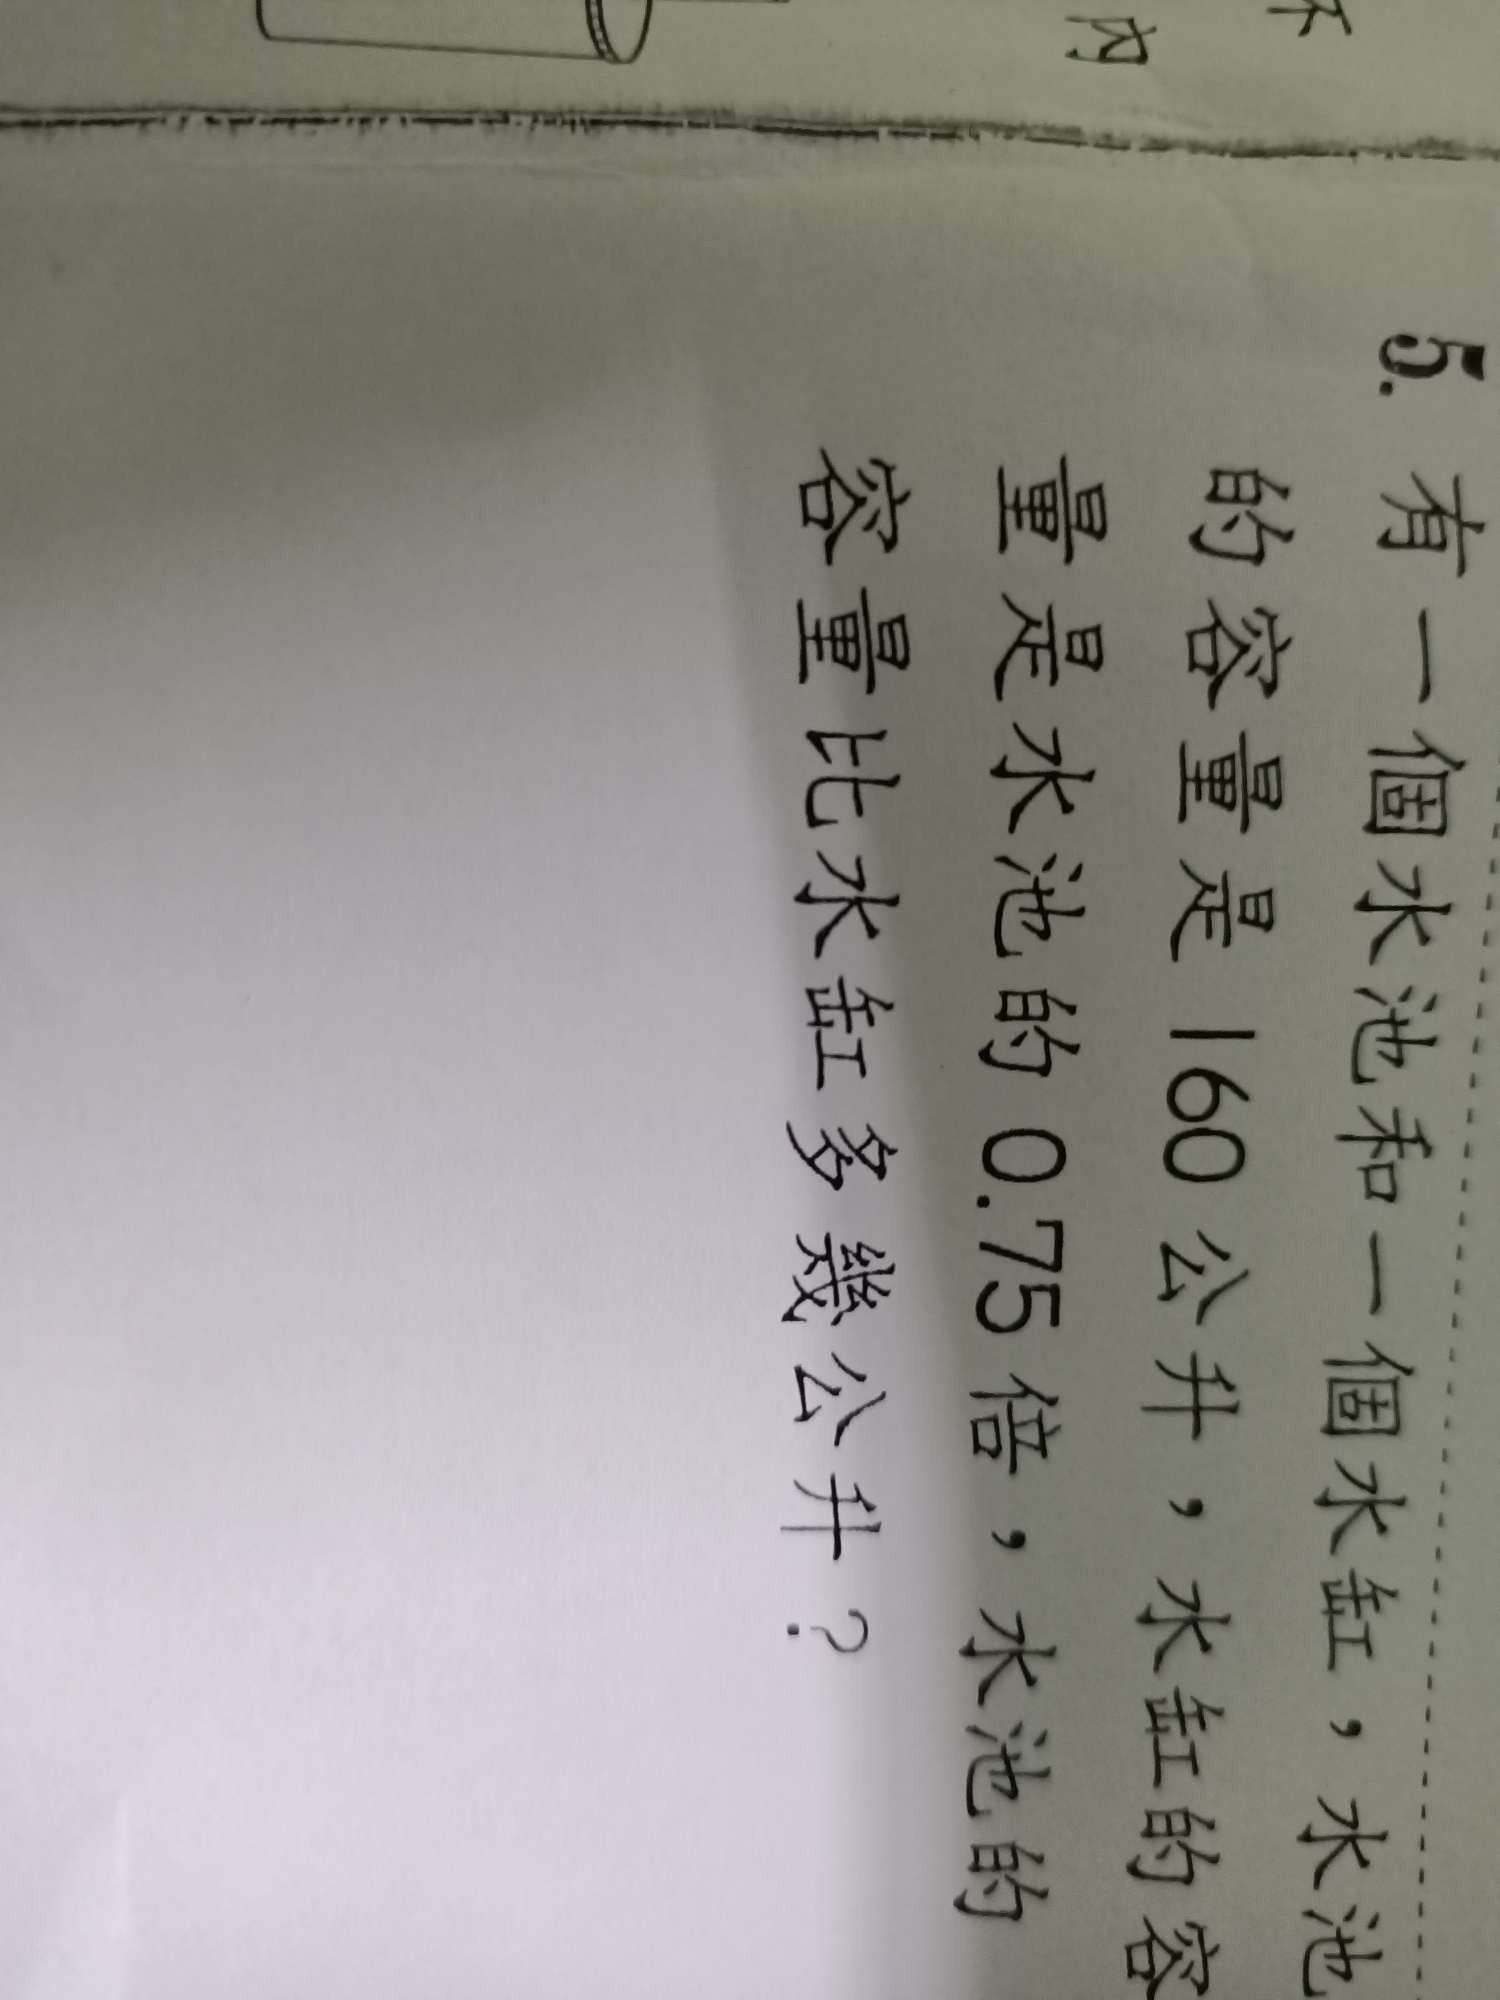 不
內
5. 有一個水池和一個水缸，水池
的容量是160公升，水缸的容
量是水池的0.75倍，水池的
容量比水缸多幾公升？